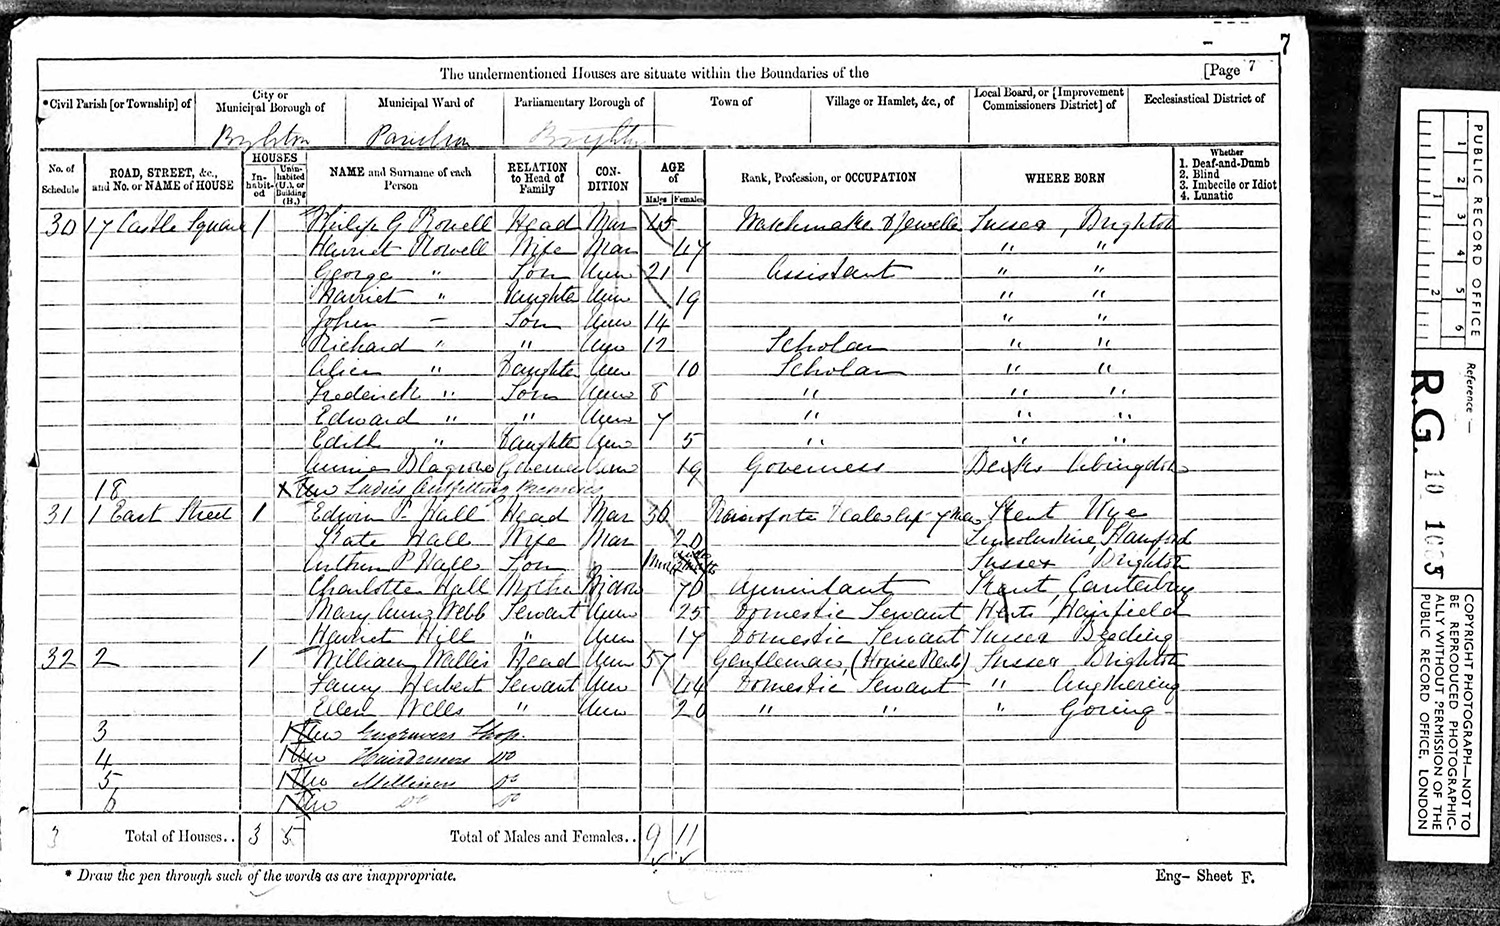 7
The undermentioned Houses are situate within the Boundaries of the [Page 7
*Civil Parish [or Township] of City or Municipal Borough of Municipal Ward of Parliamentary Borough of Town of Village or Hamlet, &c., of Local Board, or [Improvement Commissioners District] of Ecclesiastical District of
Brighton Pavilion Brighton
No. of Schedule ROAD, STREET, &c., and No. or NAME of HOUSE HOUSES In-habit-ed Unin-habited (U.), or Building (B.) NAME and Surname of each Person RELATION to Head of Family CON-DITION AGE of Males Females Rank, Profession, or OCCUPATION WHERE BORN Whether 1. Deaf-and-Dumb 2. Blind 3. Imbecile or Idiot 4. Lunatic
30 17 Castle Square 1 Philip G Rowell Head Mar 45 Watchmaker & Jeweller Sussex, Brighton
Harriet Rowell Wife Mar 47 " "
George " Son Unm 21 Assistant " "
Harriet " Daughter Unm 19 " "
John – Son Unm 14 " "
Richard " " Unm 12 Scholar " "
Alice " Daughter Unm 10 Scholar " "
Frederick " Son Unm 8 " " "
Edward " " Unm 7 " " "
Edith " Daughter Unm 5 " " "
Annie Blagrove Governess Unm 19 Governess Berks Abingdon
18 Ladies Outfitting Premises
31 1 East Street 1 Edwin P. Hall Head Mar 36 Pianoforte Dealer Kent Wye
Kate Hall Wife Mar 20 Lincolnshire, Stamford
Arthur P Hall Son Sussex Brighton
Charlotte Hall Mother Widow 70 Annuitant Kent, Canterbury
Mary Ann Webb Servant Unm 25 Domestic Servant Herts,
Harriet Hill " Unm 17 Domestic Servant Sussex Beeding
32 2 1 William Wallis Head Unm 57 Gentleman, (House Rents) Sussex Brighton
Fanny Herbert Servant Unm 44 Domestic Servant " Angmering
Ellen Wells " Unm 20 " " " Goring
3 1 Engravers Shop.
4 1 Hairdressers Do
5 1 Milliners Do
6 1 Do Do
3 Total of Houses.. 3 5 Total of Males and Females.. 9 11
* Draw the pen through such of the words as are inappropriate. Eng- Sheet F.
PUBLIC RECORD OFFICE
1 2 3 4 5 6
1 2
Reference:—
R.G. 10 1085
COPYRIGHT PHOTOGRAPH—NOT TO
BE REPRODUCED PHOTOGRAPHIC-
ALLY WITHOUT PERMISSION OF THE
PUBLIC RECORD OFFICE, LONDON